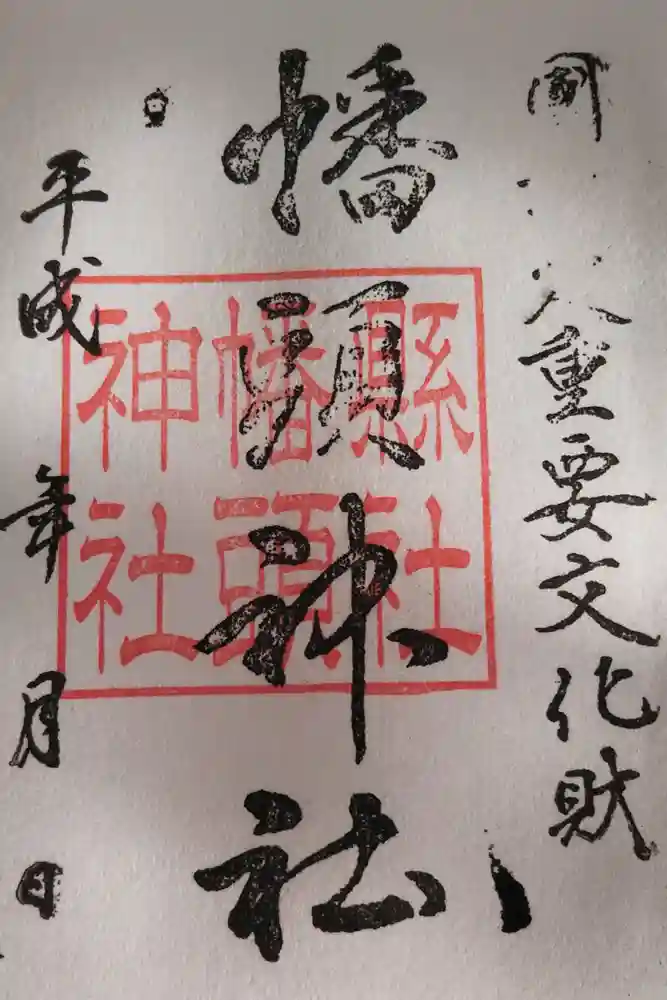 国 重要文化財
幡頭神社
縣社
幡頭
神社
平成 年 月 日